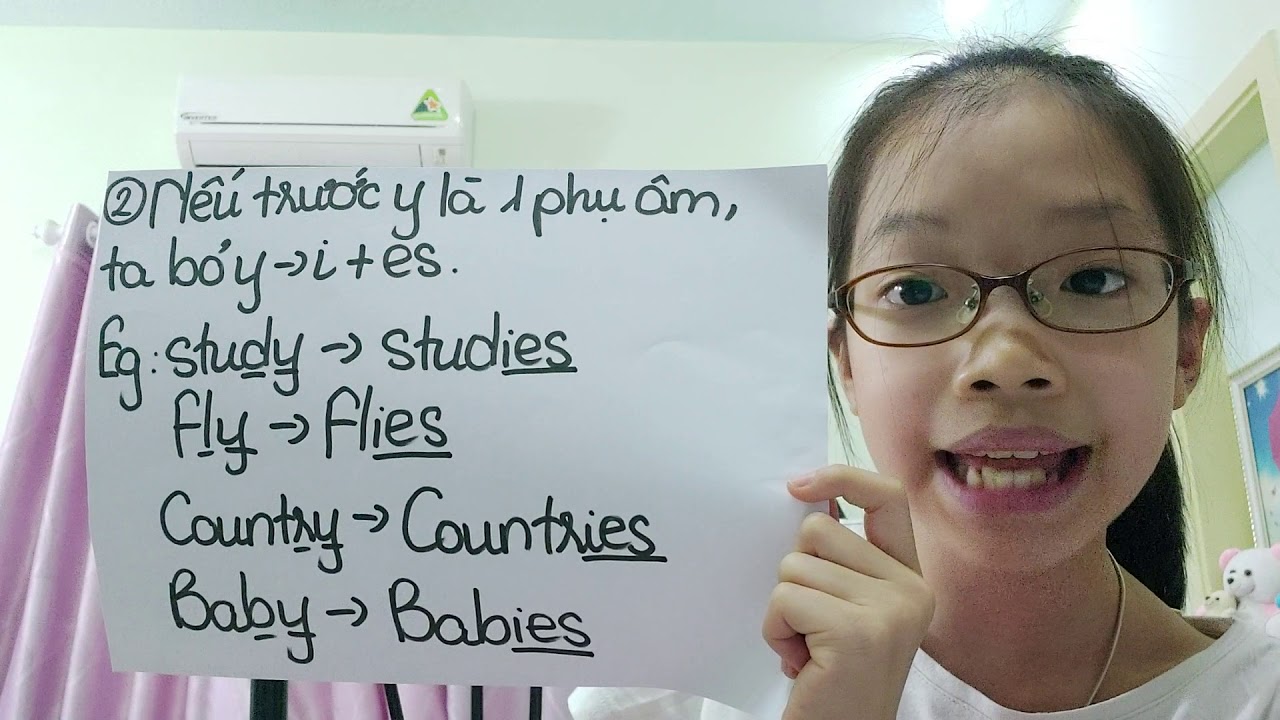 INVERTER
② Nếu trước y là 1 phụ âm,
ta bỏ y → i + es.
Eg: study → studies
fly → flies
Country → Countries
Baby → Babies